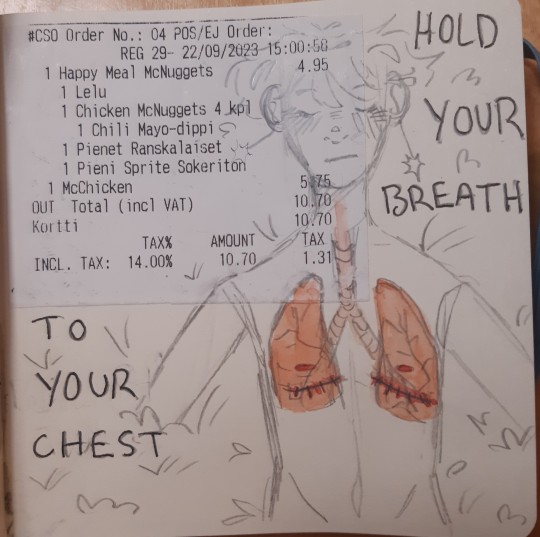 #CSO Order No.: 04 POS/EJ Order:
REG 29- 22/09/2023 15:00:58
1 Happy Meal McNuggets 4.95
1 Lelu
1 Chicken McNuggets 4 kpl
1 Chili Mayo-dippi
1 Pienet Ranskalaiset
1 Pieni Sprite Sokeriton
1 McChicken 5.75
OUT Total (incl VAT) 10.70
Kortti 10.70
TAX% AMOUNT TAX
INCL. TAX: 14.00% 10.70 1.31
HOLD
YOUR
BREATH
TO
YOUR
CHEST